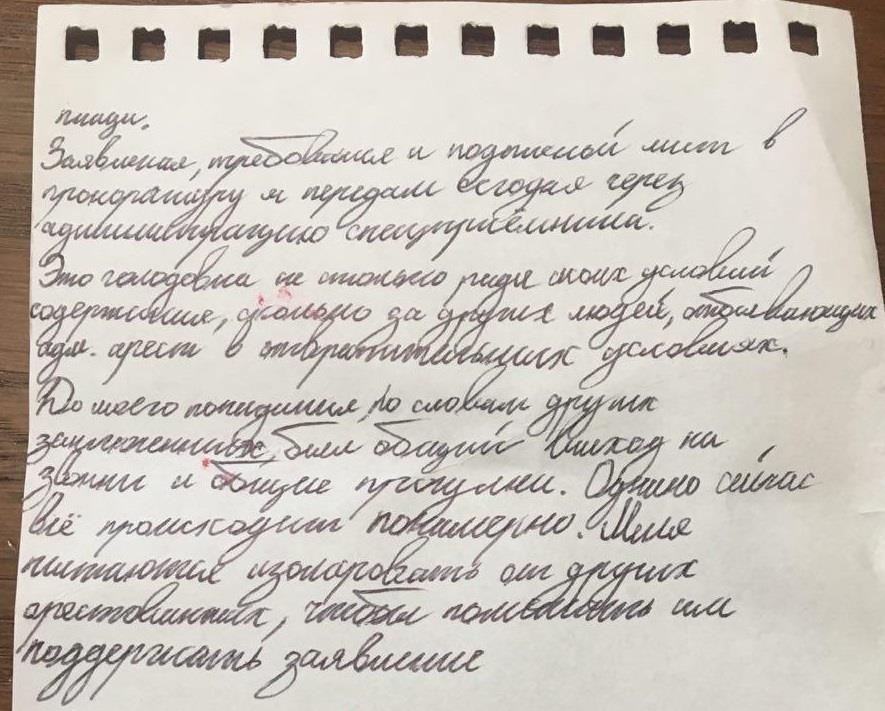 пиади.
Заявления, требования и подписной лист в
прокоратуру я передам сегодня через
администрацию спецприёмника.
Это голодовка не столько ради моих условий
содержания, сколько за других людей, отбывающих
адм. арест в отвратительных условиях.
До моего попадания, по словам других
заключенных, был общий выход на
звонки и общие прогулки. Однако сейчас
всё происходит покамерно. Меня
пытаются изолировать от других
арестованных, чтобы помешать им
поддержать заявление